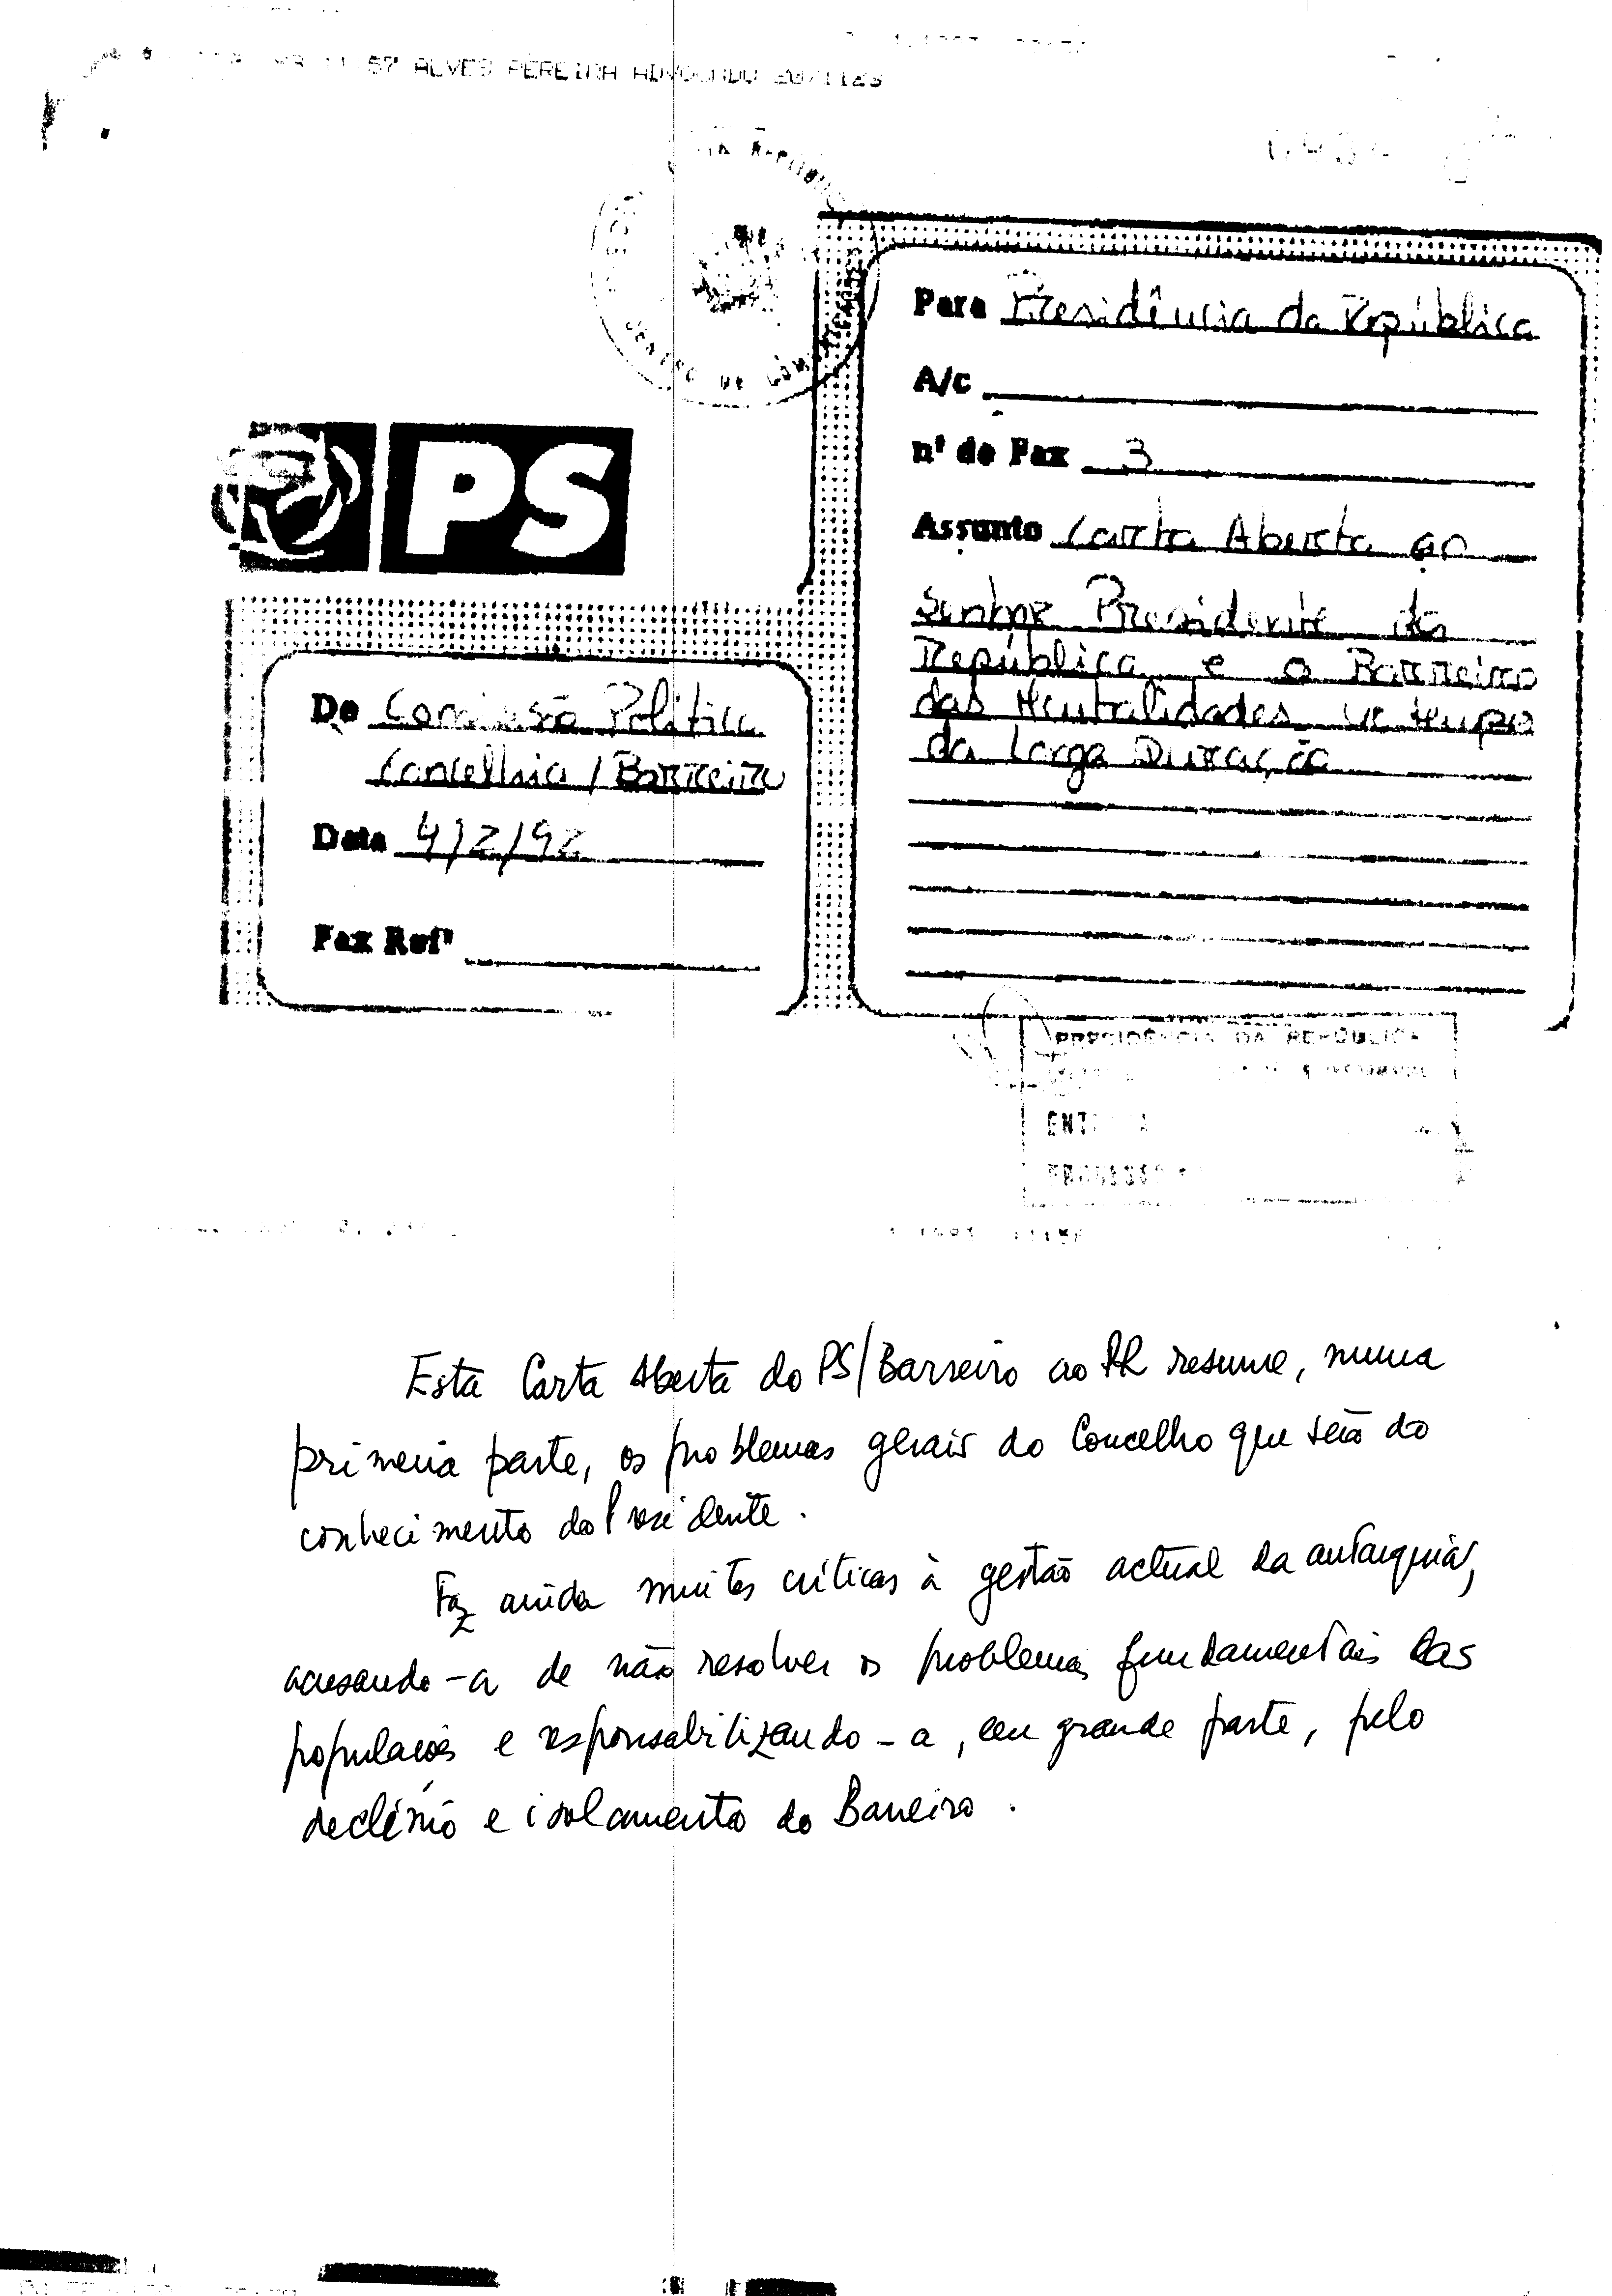 11:57 ALVES PEREIRA ADVOGADO 2071123
Para Presidência da República
A/c
nº de Fax 3
Assunto Carta Aberta ao
Senhor Presidente da
República e o Barreiro
das Neutralidades
da Larga Duração
PS
De Comissão Política
Concelhia / Barreiro
Data 4/2/92
Fax Refª
PRESIDÊNCIA DA REPÚBLICA
PROCESSO
Esta Carta Aberta do PS/Barreiro ao PR resume, numa
primeira parte, os problemas gerais do Concelho que serão do
conhecimento do Presidente.
Faz ainda muitas críticas à gestão actual da autarquia,
acusando-a de não resolver os problemas fundamentais das
populações e responsabilizando-a, em grande parte, pelo
declínio e isolamento do Barreiro.